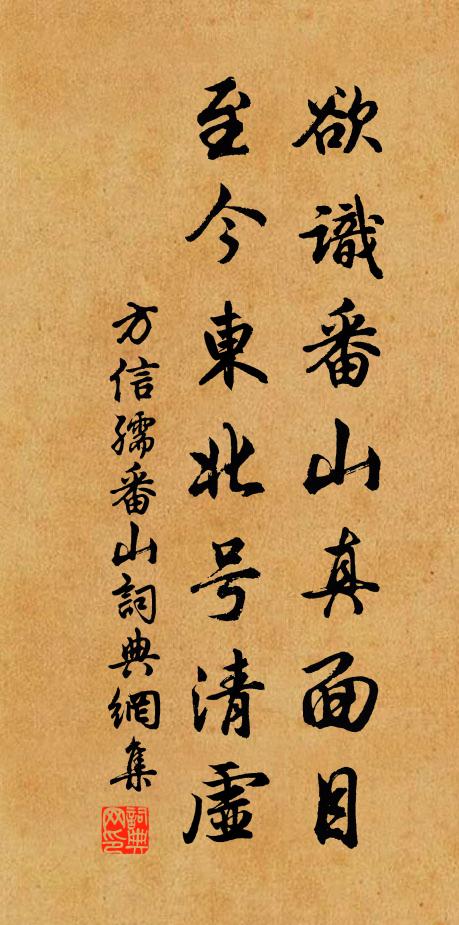 欲識番山真面目
至今東北号清虛
方信孺番山詞典網集
詞典网印